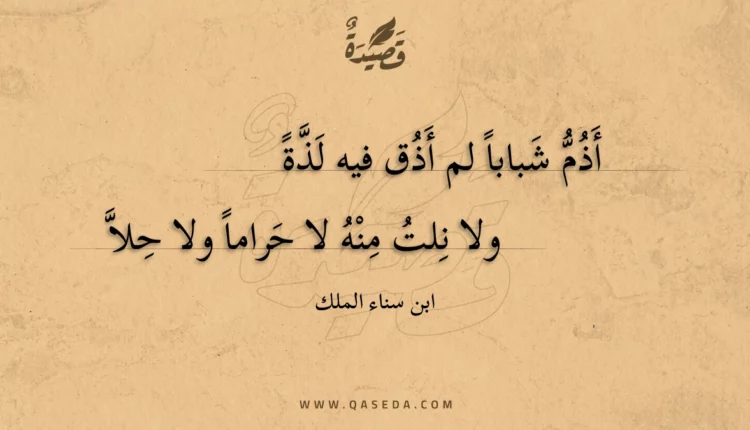 قَصِيدَةٌ
أَذُمُّ شَباباً لم أَذُق فيه لَذَّةً
ولا نِلتُ مِنْهُ لا حَراماً ولا حِلاَّ
ابن سناء الملك
WWW.QASEDA.COM